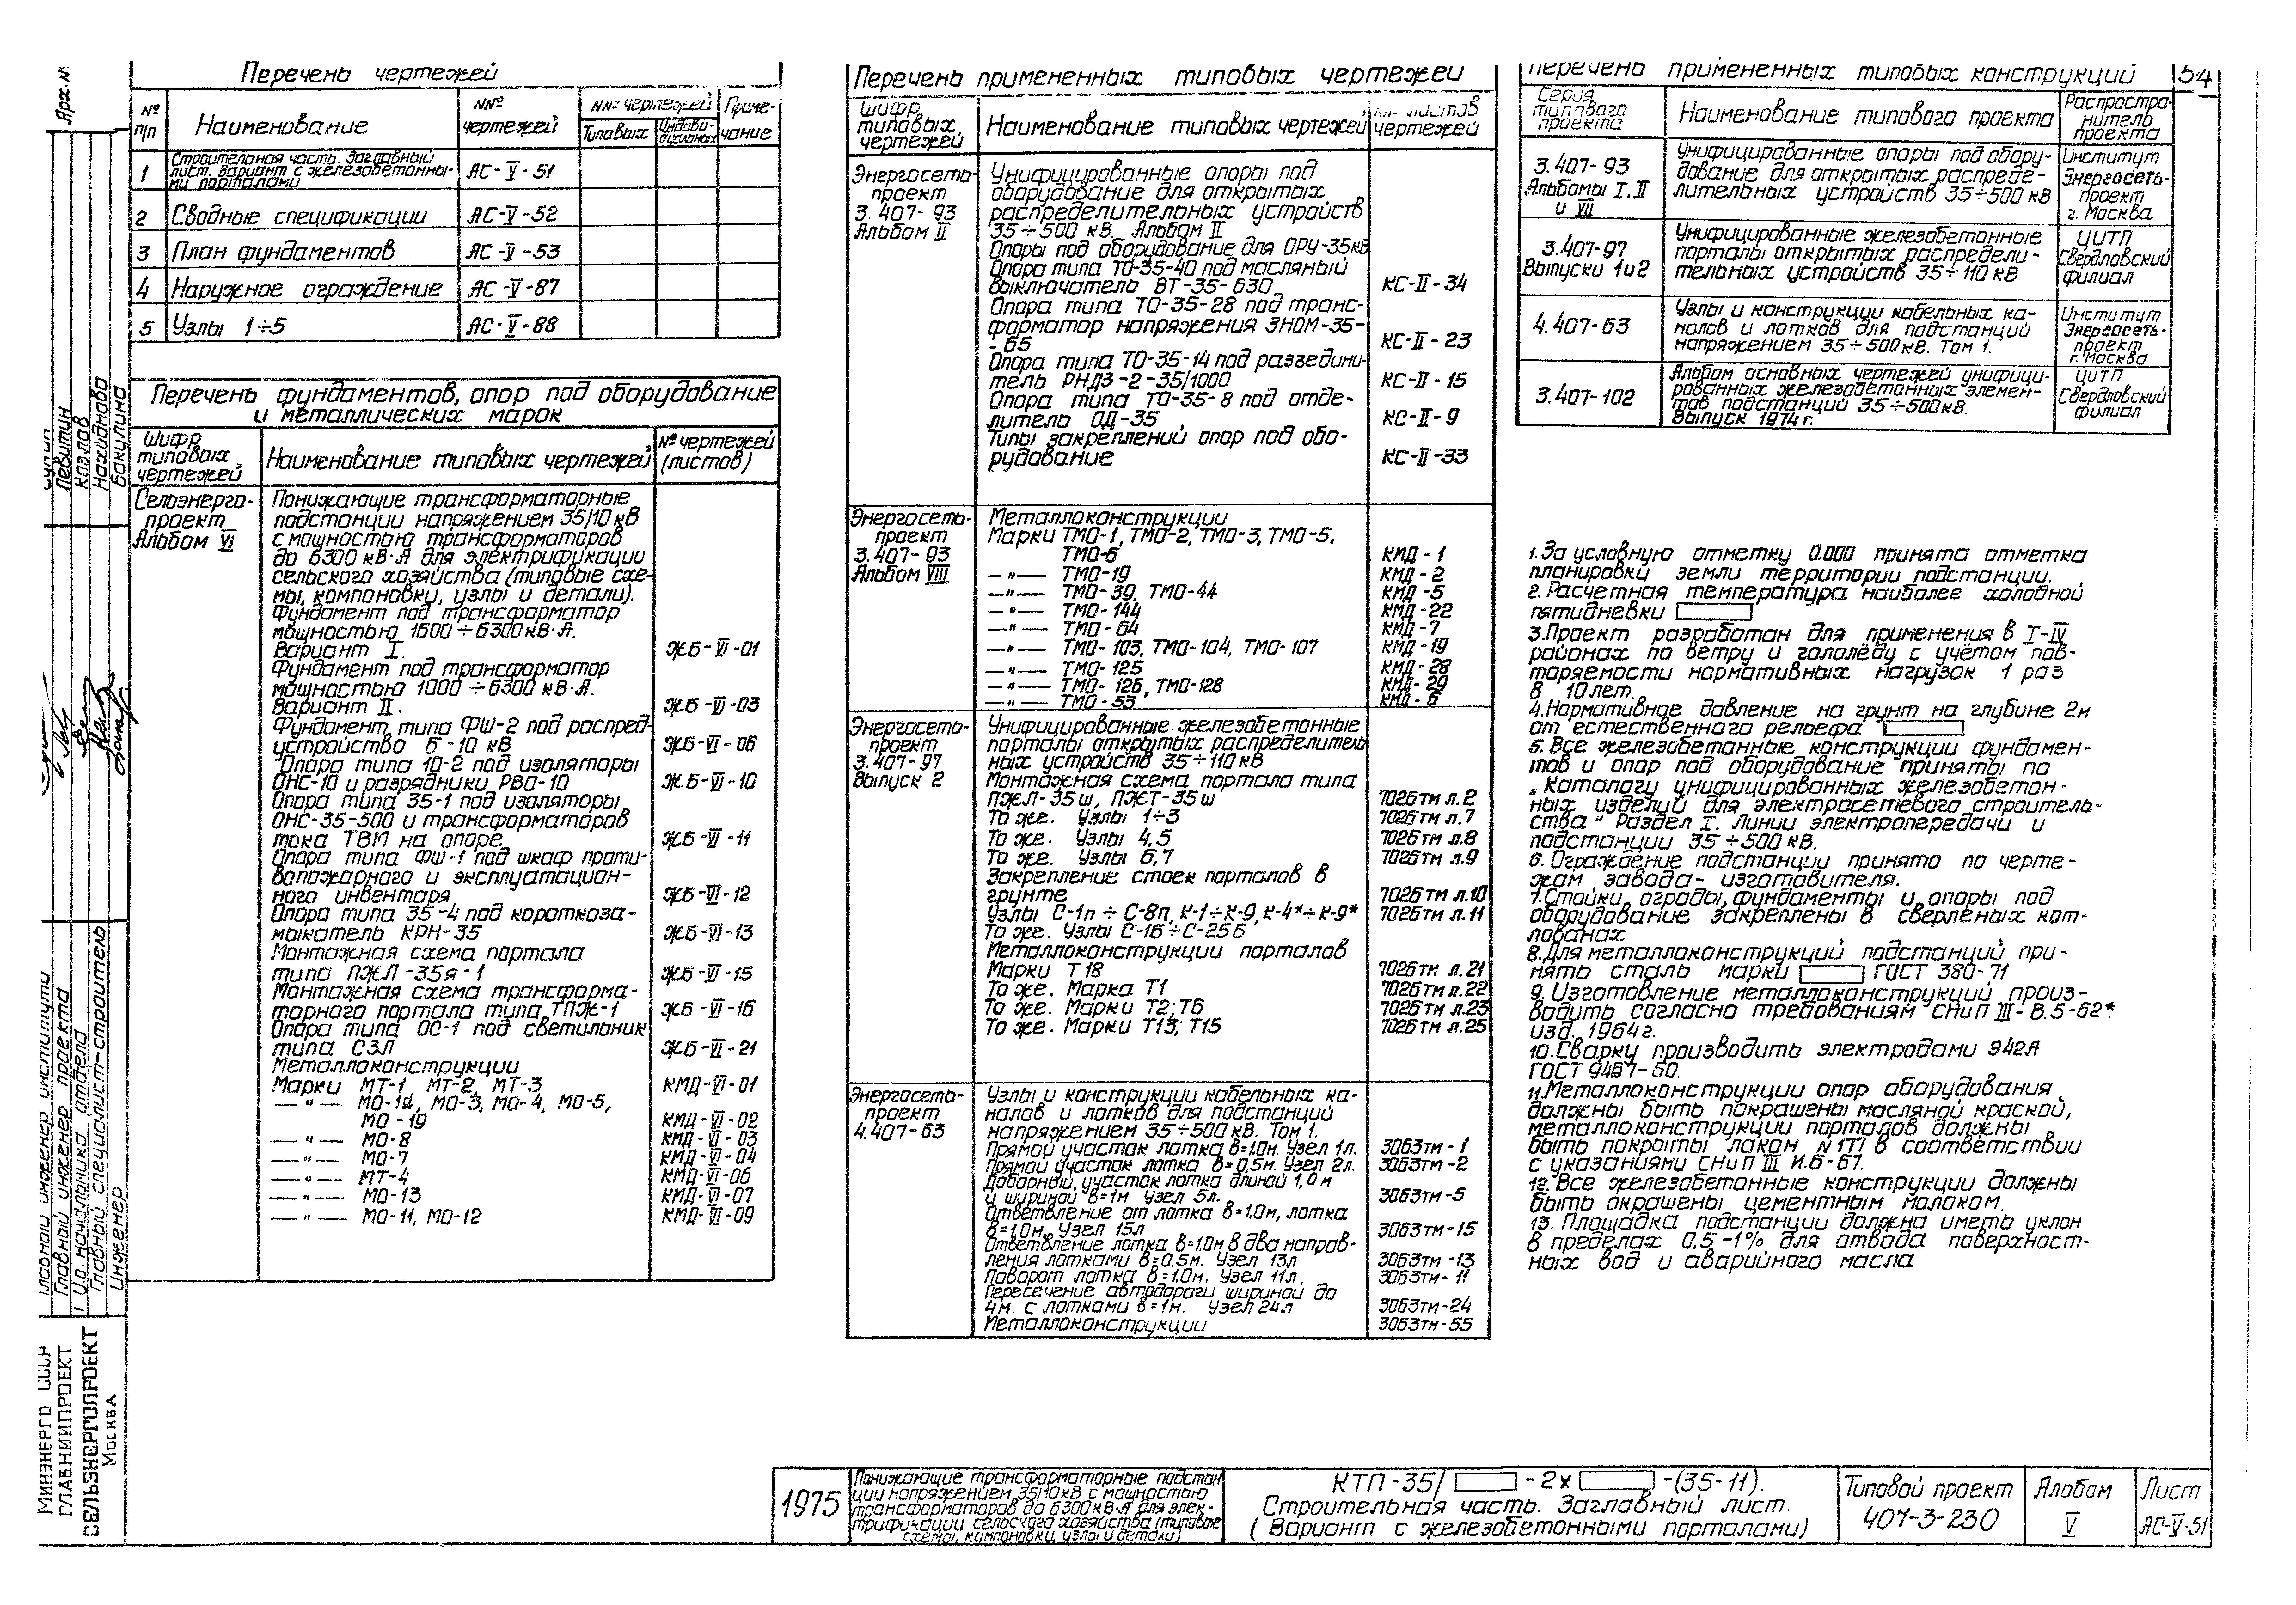 Перечень чертежей
№ п/п
Наименование
№№ чертежей
№№ чертежей
Типовых
Индиви-
дуальных
Приме-
чание
1
Строительная часть. Заглавный
лист. Вариант с железобетонны-
ми порталами
АС-V-51
2 Сводные спецификации АС-V-52
3 План фундаментов АС-V-53
4 Наружное ограждение АС-V-87
5 Узлы 1÷5 АС-V-88
Перечень фундаментов, опор под оборудование
и металлических марок
Шифр
типовых
чертежей
Наименование типовых чертежей
№ чертежей
(листов)
Сельэнерго-
проект
Альбом VI
Понижающие трансформаторные
подстанции напряжением 35/10 кВ
с мощностью трансформаторов
до 6300 кВ·А для электрификации
сельского хозяйства (типовые схе-
мы, компоновки, узлы и детали).
Фундамент под трансформатор
мощностью 1600÷6300 кВ·А.
Вариант I. ЖБ-VI-01
Фундамент под трансформатор
мощностью 1000÷6300 кВ·А.
Вариант II. ЖБ-VI-03
Фундамент типа ФШ-2 под распред-
устройство 6-10 кВ ЖБ-VI-06
Опора типа 10-2 под изоляторы
ОНС-10 и разрядники РВО-10 ЖБ-VI-10
Опора типа 35-1 под изоляторы
ОНС-35-500 и трансформаторов
тока ТВМ на опоре ЖБ-VI-11
Опора типа ФШ-1 под шкаф проти-
вопожарного и эксплуатацион-
ного инвентаря ЖБ-VI-12
Опора типа 35-4 под короткоза-
мыкатель КРН-35 ЖБ-VI-13
Монтажная схема портала
типа ПЖЛ-35я-1 ЖБ-VI-15
Монтажная схема трансформа-
торного портала типа ТПЖ-1 ЖБ-VI-16
Опора типа ОС-1 под светильник
типа СЗЛ ЖБ-VI-21
Металлоконструкции
Марки МТ-1, МТ-2, МТ-3 КМД-VI-01
—"— МО-1, МО-3, МО-4, МО-5,
МО-19 КМД-VI-02
—"— МО-8 КМД-VI-03
—"— МО-7 КМД-VI-04
—"— МТ-4 КМД-VI-06
—"— МО-13 КМД-VI-07
—"— МО-11, МО-12 КМД-VI-09
Перечень примененных типовых чертежей
Шифр
типовых
чертежей
Наименование типовых чертежей
листов
чертежей
Энергосеть-
проект
3.407-93
Альбом II
Унифицированные опоры под
оборудование для открытых
распределительных устройств
35÷500 кВ. Альбом II
Опоры под оборудование для ОРУ-35кВ
Опора типа ТО-35-40 под масляный
выключатель ВТ-35-630 КС-II-34
Опора типа ТО-35-28 под транс-
форматор напряжения ЗНОМ-35-
-65 КС-II-23
Опора типа ТО-35-14 под разъедини-
тель РНДЗ-2-35/1000 КС-II-15
Опора типа ТО-35-8 под отде-
литель ОД-35 КС-II-9
Типы закреплений опор под обо-
рудование КС-II-33
Энергосеть-
проект
3.407-93
Альбом VIII
Металлоконструкции
Марки ТМО-1, ТМО-2, ТМО-3, ТМО-5,
ТМО-6 КМД-1
—"— ТМО-19 КМД-2
—"— ТМО-39, ТМО-44 КМД-5
—"— ТМО-144 КМД-22
—"— ТМО-64 КМД-7
—"— ТМО-103, ТМО-104, ТМО-107 КМД-19
—"— ТМО-125 КМД-28
—"— ТМО-126, ТМО-128 КМД-29
—"— ТМО-53 КМД-6
Энергосеть-
проект
3.407-97
Выпуск 2
Унифицированные железобетонные
порталы открытых распределитель
ных устройств 35÷110 кВ
Монтажная схема портала типа
ПЖЛ-35ш, ПЖТ-35ш 7026тм л.2
То же. Узлы 1÷3 7026тм л.7
То же. Узлы 4,5 7026тм л.8
То же. Узлы 6,7 7026тм л.9
Закрепление стоек порталов в
грунте 7026тм л.10
Узлы С-1п ÷ С-8п, К-1÷К-9, К-4*÷К-9* 7026тм л.11
То же. Узлы С-1б÷С-25б
Металлоконструкции порталов
Марки Т18 7026тм л.21
То же. Марка Т1 7026тм л.22
То же. Марки Т2; Т6 7026тм л.23
То же. Марки Т13; Т15 7026тм л.25
Энергосеть-
проект
4.407-63
Узлы и конструкции кабельных ка-
налов и лотков для подстанций
напряжением 35÷500 кВ. Том 1.
Прямой участок лотка в=1,0м. Узел 1л. 3063тм-1
Прямой участок лотка в=0,5м. Узел 2л. 3063тм-2
Доборный участок лотка длиной 1,0 м
и шириной в=1м Узел 5л. 3063тм-5
Ответвление от лотка в=1,0м, лотка
в=1,0м, Узел 15л 3063тм-15
Ответвление лотка в=1,0м в два направ-
ления лотками в=0,5м. Узел 13л 3063тм-13
Поворот лотка в=1,0м. Узел 11л, 3063тм-11
Пересечение автодороги шириной до
4м. с лотками в=1м. Узел 24л 3063тм-24
Металлоконструкции 3063тм-55
Перечень примененных типовых конструкций
54
Серия
типового
проекта
Наименование типового проекта
Распростра-
нитель
проекта
3.407-93
Альбомы I, II
и VIII
Унифицированные опоры под обору-
дование для открытых распреде-
лительных устройств 35÷500 кВ
Институт
Энергосеть-
проект
г. Москва
3.407-97
Выпуски 1и2
Унифицированные железобетонные
порталы открытых распредели-
тельных устройств 35÷110 кВ
ЦИТП
Свердловский
филиал
4.407-63
Узлы и конструкции кабельных ка-
налов и лотков для подстанций
напряжением 35÷500кВ. Том 1.
Институт
Энергосеть-
проект
г. Москва
3.407-102
Альбом основных чертежей унифици-
рованных железобетонных элемен-
тов подстанций 35÷500кВ.
Выпуск 1974г.
ЦИТП
Свердловский
филиал
1. За условную отметку 0.000 принята отметка
планировки земли территории подстанции.
2. Расчетная температура наиболее холодной
пятидневки
3. Проект разработан для применения в I-IV
районах по ветру и гололёду с учётом пов-
торяемости нормативных нагрузок 1 раз
в 10 лет.
4. Нормативное давление на грунт на глубине 2м
от естественного рельефа
5. Все железобетонные конструкции фундамен-
тов и опор под оборудование приняты по
„Каталогу унифицированных железобетон-
ных изделий для электросетевого строитель-
ства" Раздел I. Линии электропередачи и
подстанции 35÷500 кВ.
6. Ограждение подстанции принято по черте-
жам завода-изготовителя.
7. Стойки ограды, фундаменты и опоры под
оборудование закреплены в сверленых кот-
лованах
8. Для металлоконструкций подстанций при-
нять сталь марки ГОСТ 380-71
9. Изготовление металлоконструкций произ-
водить согласно требованиям СНиП III-В.5-62*
изд. 1964г.
10. Сварку производить электродами Э42А
ГОСТ 9467-60.
11. Металлоконструкции опор оборудования
должны быть покрашены масляной краской,
металлоконструкции порталов должны
быть покрыты лаком №177 в соответствии
с указаниями СНиП III И.6-67.
12. Все железобетонные конструкции должны
быть окрашены цементным молоком.
13. Площадка подстанции должна иметь уклон
в пределах 0,5-1% для отвода поверхност-
ных вод и аварийного масла
1975
Понижающие трансформаторные подстан
ции напряжением 35/10 кВ с мощностью
трансформаторов до 6300 кВ·А для элек-
трификации сельского хозяйства (типовые
схемы, компоновки, узлы и детали)
КТП-35/ -2× -(35-11).
Строительная часть. Заглавный лист.
(Вариант с железобетонными порталами)
Типовой проект
407-3-230
Альбом
V
Лист
АС-V-51
Арх.№
Левитин
Козлов
Найдёнова
Бакулина
Главный инженер института
Главный инженер проекта
И.о. начальника отдела
Главный специалист-строитель
Инженер
МИНЭНЕРГО СССР
ГЛАВНИИПРОЕКТ
СЕЛЬЭНЕРГОПРОЕКТ
Москва